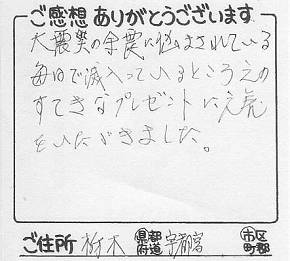 ご感想ありがとうございます
大震災の余震に悩まされている
毎日で滅入っているところへの
すてきなプレゼントに元気
をいただきました。
ご住所 栃木 県都府道 宇都宮 市区町郡